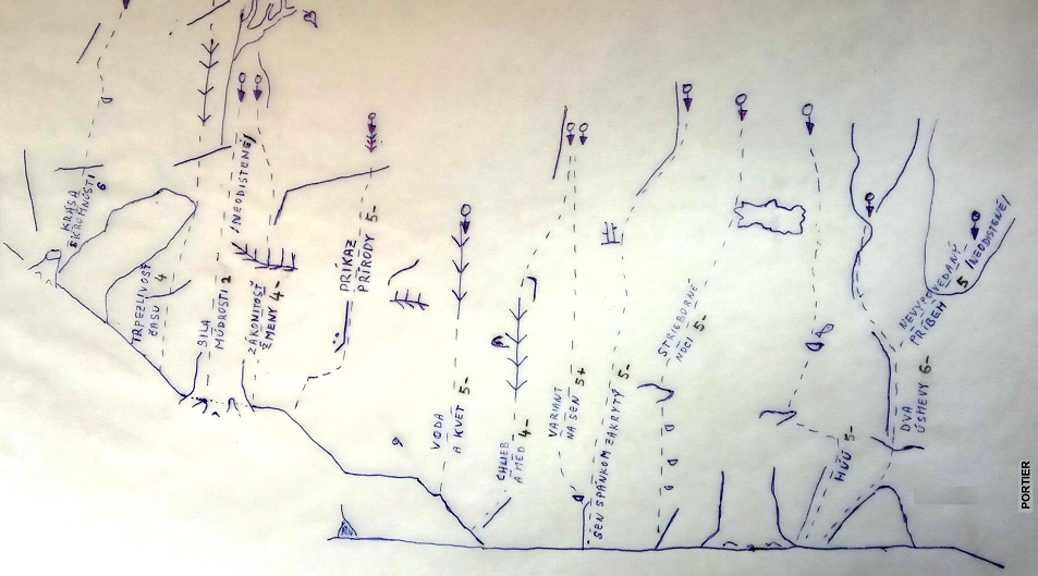 KRÁSA
SKROMNOSTI
6
TRPEZLIVOSŤ
ČASU 4
SILA
MÚDROSTI 2
/NEODISTENÉ/
ZÁKONITOSŤ
ZMENY 4-
PRÍKAZ
PRÍRODY 5-
VODA
A KVET 5-
CHLIEB
A MED 4-
VARIANT
NA SEN 5+
SEN SPÁNKOM ZAKRYTÝ 5-
STRIEBORNÉ
NOCI 5-
HVÚ 5-
DVA
ÚSMEVY 6-
NEVYPOVEDANÝ
PRÍBEH 5 /NEODISTENÉ/
PORTIER